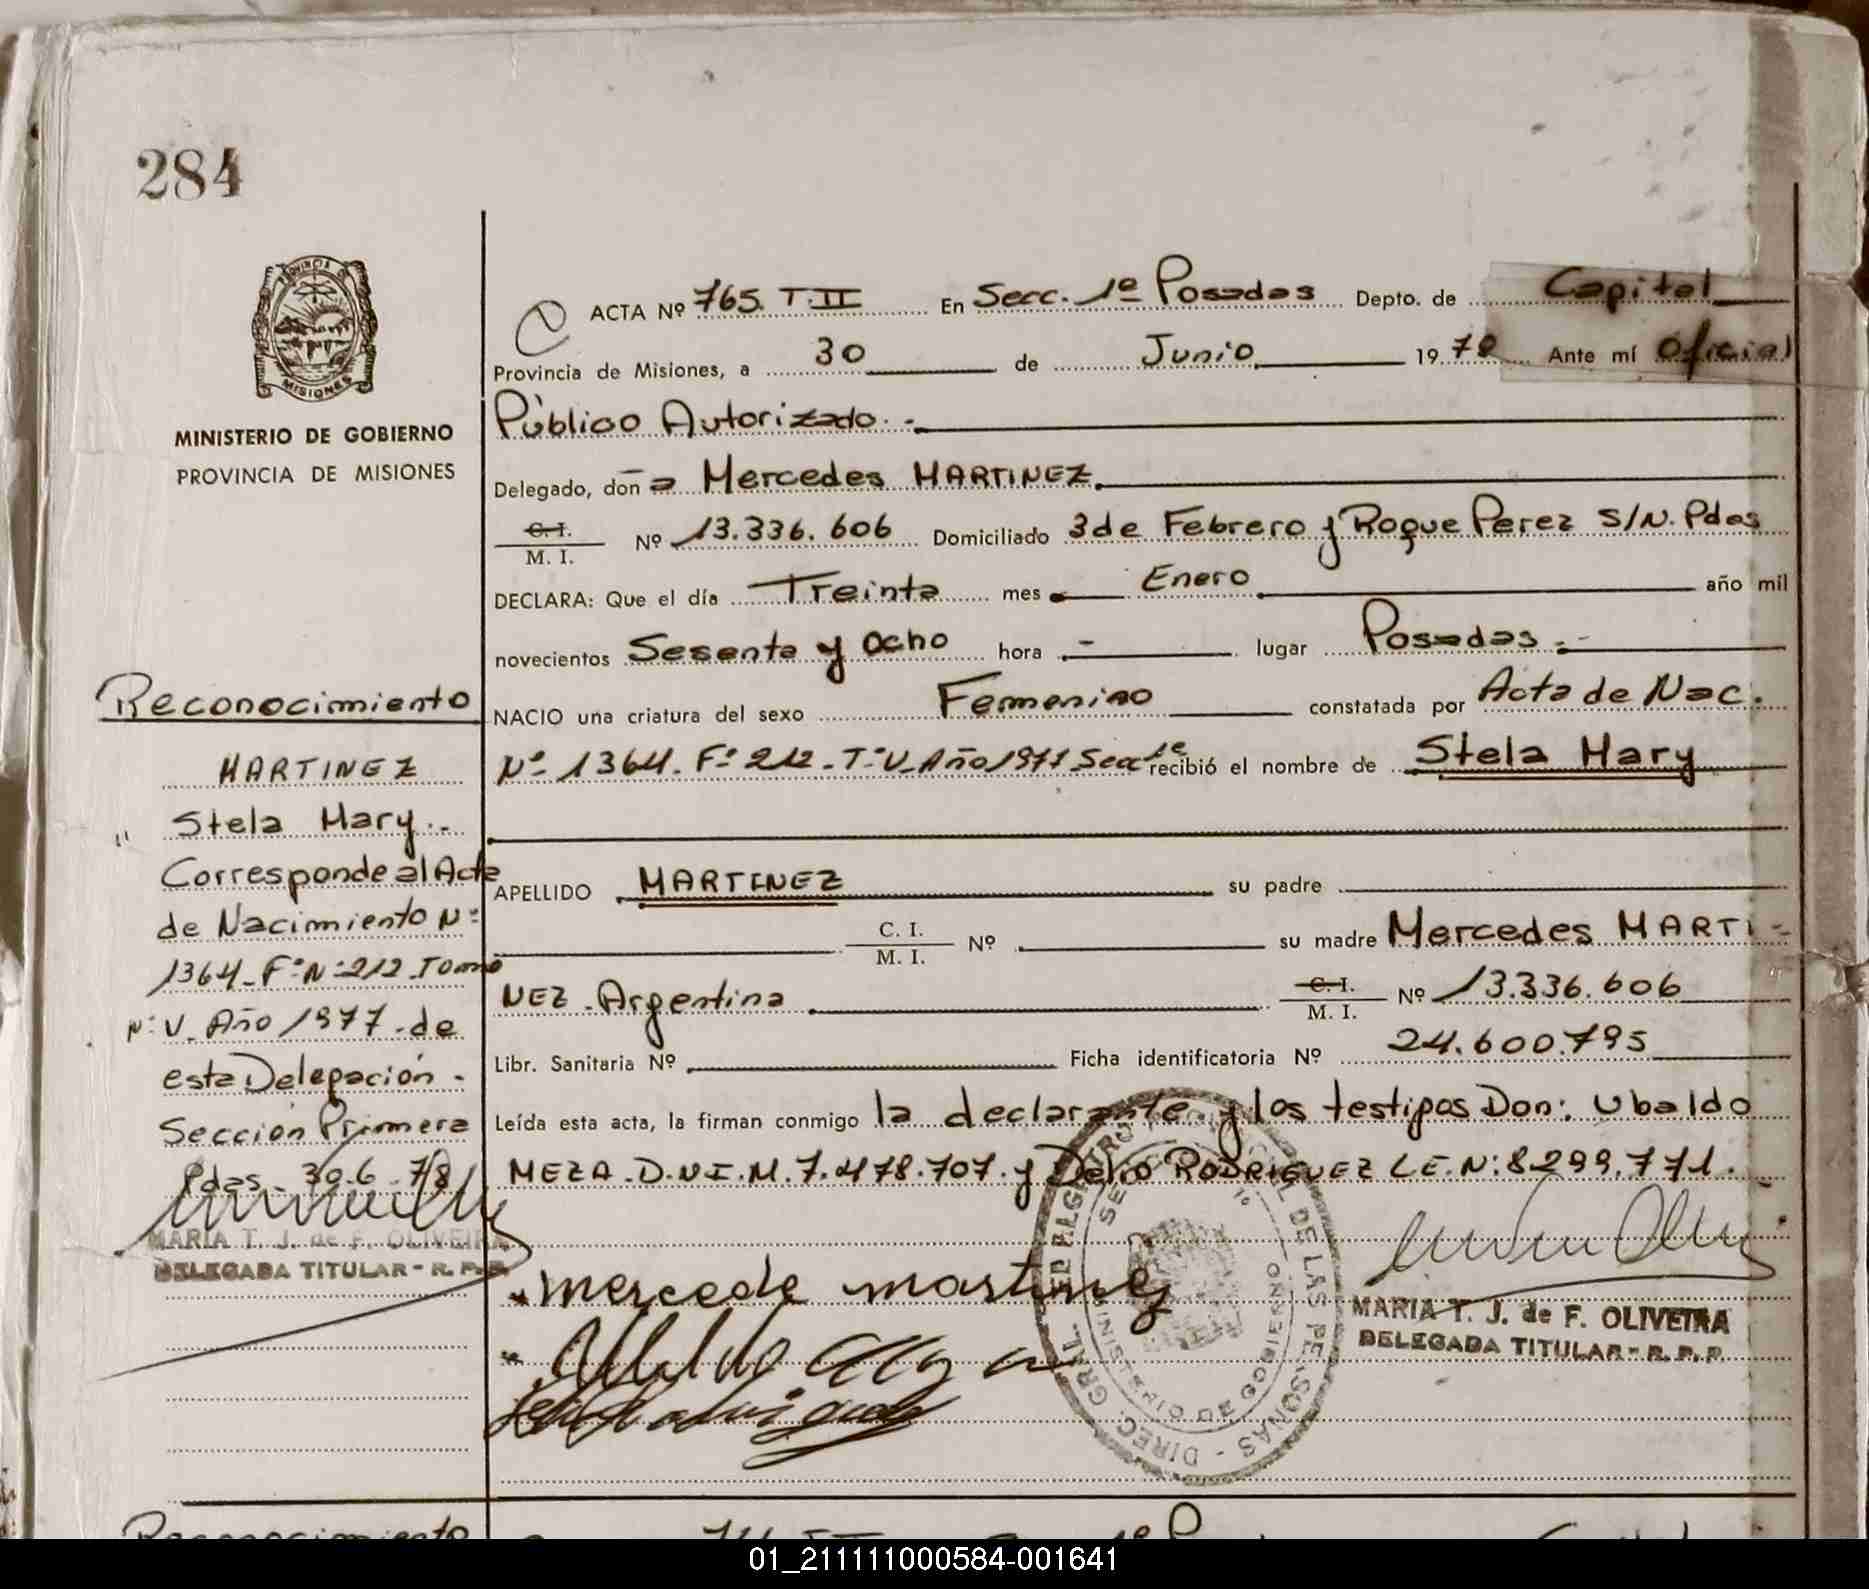 284
PROVINCIA DE
MISIONES
MINISTERIO DE GOBIERNO
PROVINCIA DE MISIONES
ACTA Nº 765. T.II En Secc. 1º Posadas Depto. de Capital
Provincia de Misiones, a 30 de Junio 1978 Ante mí Oficial
Público Autorizado.-
Delegado, doña Mercedes MARTINEZ.
C. I.
M. I.
Nº 13.336.606 Domiciliado 3 de Febrero y Roque Perez S/N. Pdas
DECLARA: Que el día Treinta mes Enero año mil
novecientos Sesenta y Ocho hora - lugar Posadas.-
NACIO una criatura del sexo Femenino constatada por Acta de Nac.
Nº 1364. Fº 212 - Tº V - Año 1977 Secc 1e recibió el nombre de Stela Mary
APELLIDO MARTINEZ su padre
C. I.
M. I.
Nº su madre Mercedes MARTI-
NEZ - Argentina
C. I.
M. I.
Nº 13.336.606
Libr. Sanitaria Nº Ficha identificatoria Nº 24.600.795
Leída esta acta, la firman conmigo la declarante y los testigos Don: Ubaldo
MEZA - D.N.I.M. 7.478.707. y Delio RODRIGUEZ L.E. N: 8299.771.
Reconocimiento
MARTINEZ
" Stela Mary.-
Corresponde al Acta
de Nacimiento Nº
1364 - Fº Nº 212 - Tomo
Nº V - Año 1977 - de
esta Delegación -
Sección Primera
Pdas - 30-6-78
MARIA T. J. de F. OLIVEIRA
DELEGADA TITULAR - R. P. P.
mercede martinez
DIREC. GRAL. DE LAS PERSONAS
MINISTERIO DE GOBIERNO
MARIA T. J. de F. OLIVEIRA
DELEGADA TITULAR - R. P. P.
Reconocimiento
01_211111000584-001641